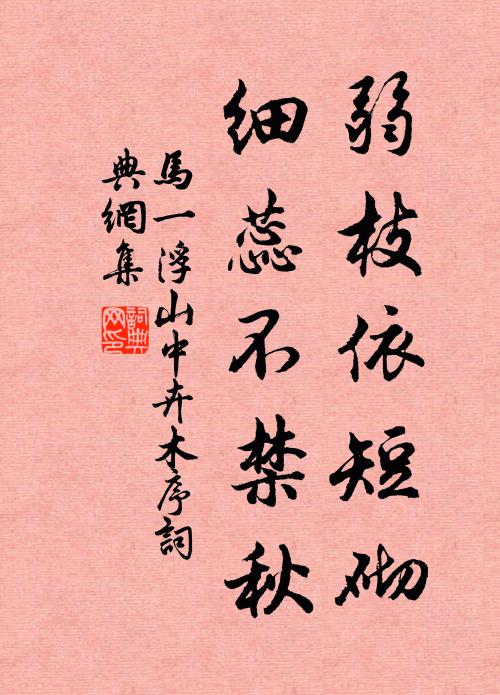 弱枝依短砌
細蕊不禁秋
馬一浮山中卉木序詞
典網集
詞典網印